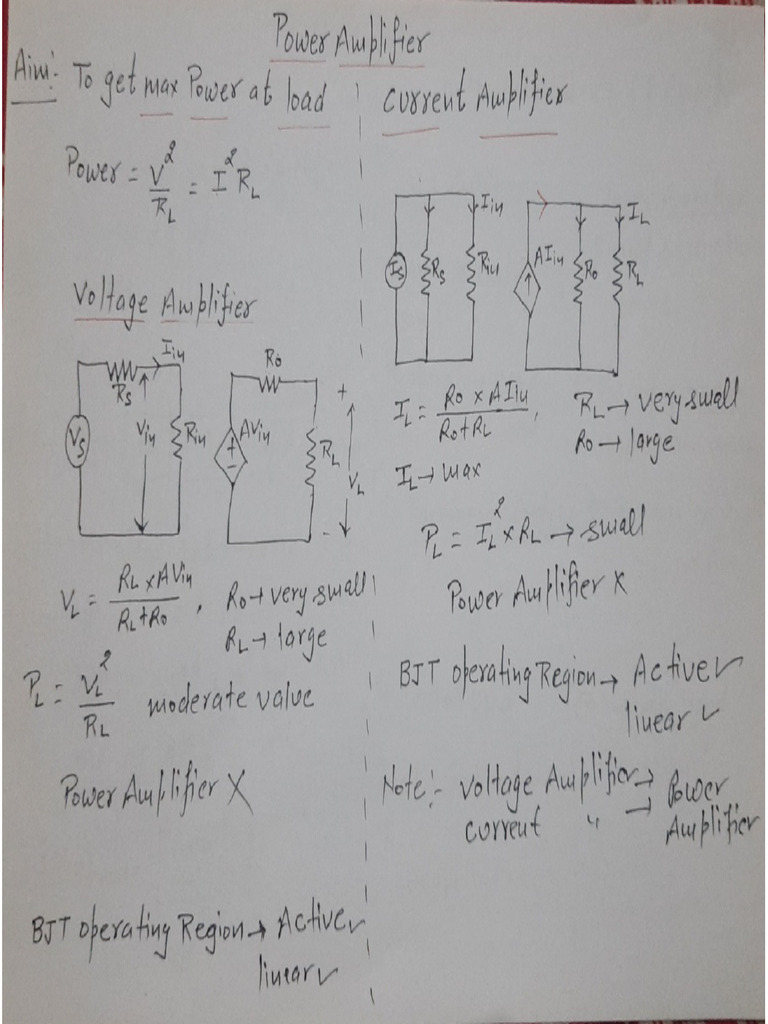 Power Amplifier
Aim:- To get max Power at load
Power = V²/RL = I² RL
Voltage Amplifier
Iin
Rs
Vs
Vin
Rin
Ro
AVin
+
-
RL
+
VL
-
VL = RL x AVin / RL + Ro , Ro → very small
RL → large
PL = VL²/RL moderate value
Power Amplifier X
BJT operating Region → Active ✓
linear ✓
Current Amplifier
Is
Rs
Iin
Rin
AIin
Ro
IL
RL
IL = Ro x AIin / Ro + RL , RL → very small
Ro → large
IL → max
PL = IL² x RL → small
Power Amplifier X
BJT operating Region → Active ✓
linear ✓
Note:- Voltage Amplifier → Power
current " → Amplifier